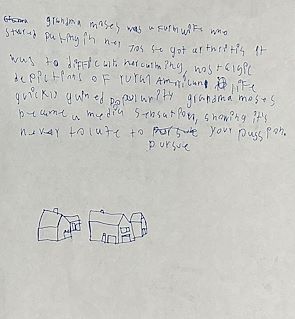 grandma moses was a farm wife who
started puinting in her 70s she got arthritis it
was to difficult her charming, nostalgic
depictions of rural American life
quickly guined popularity grandma moses
became a media sensation, showing it's
never to lute to pursue your pussion.
pursue